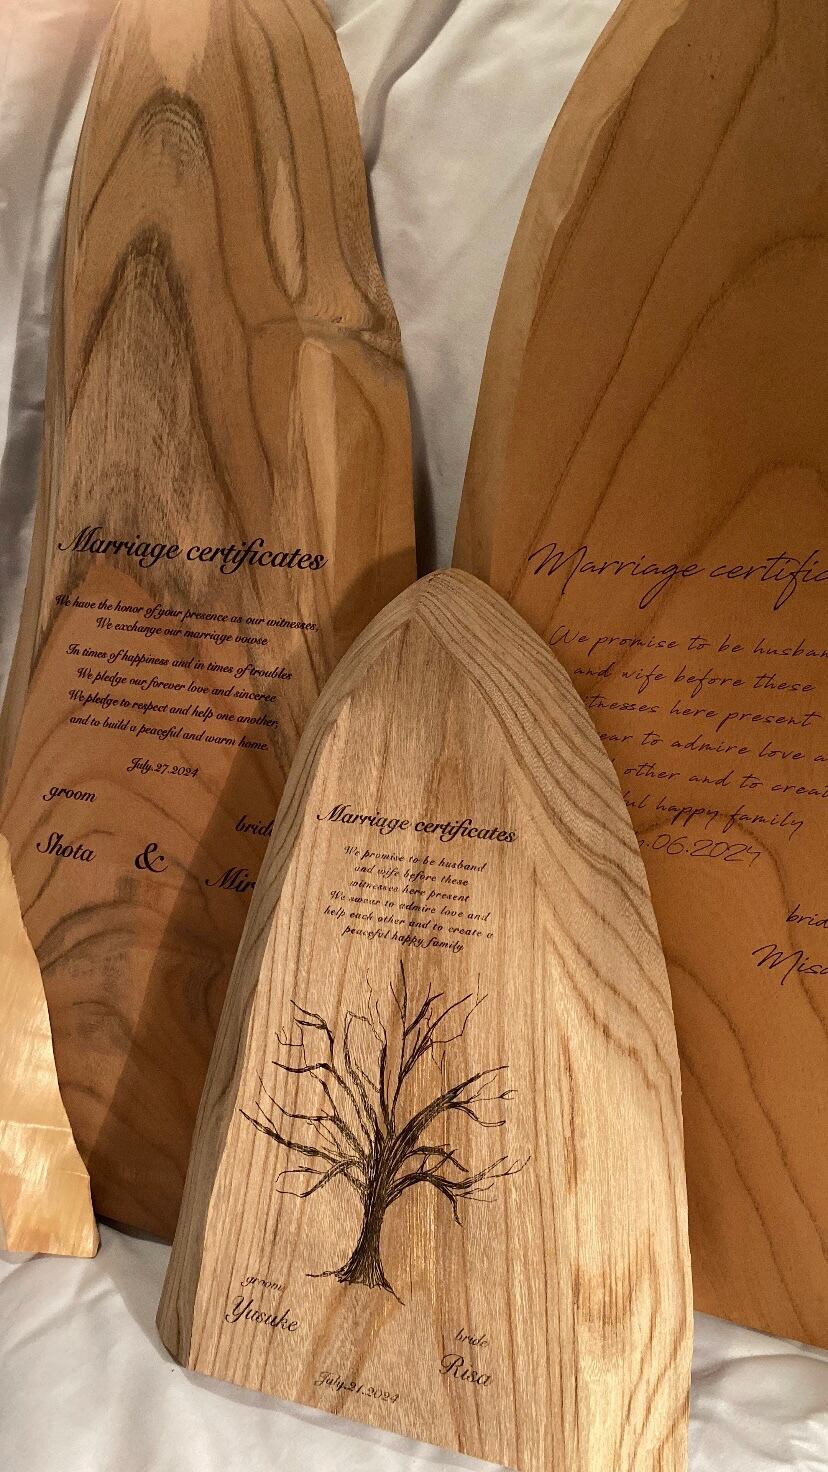 Marriage certificates
We have the honor of your presence as our witnesses,
We exchange our marriage vowse
In times of happiness and in times of troubles
We pledge our forever love and sinceree
We pledge to respect and help one another,
and to build a peaceful and warm home.
July.27.2024
groom
bride
Shota & Mir
Marriage certificates
We promise to be husband
and wife before these
witnesses here present
We swear to admire love and
help each other and to create a
peaceful happy family
groom
Yusuke
bride
Risa
July.21.2024
Marriage certific
We promise to be husban
and wife before these
itnesses here present
ear to admire love a
other and to creat
ful happy family
.06.2024
brid
Misa